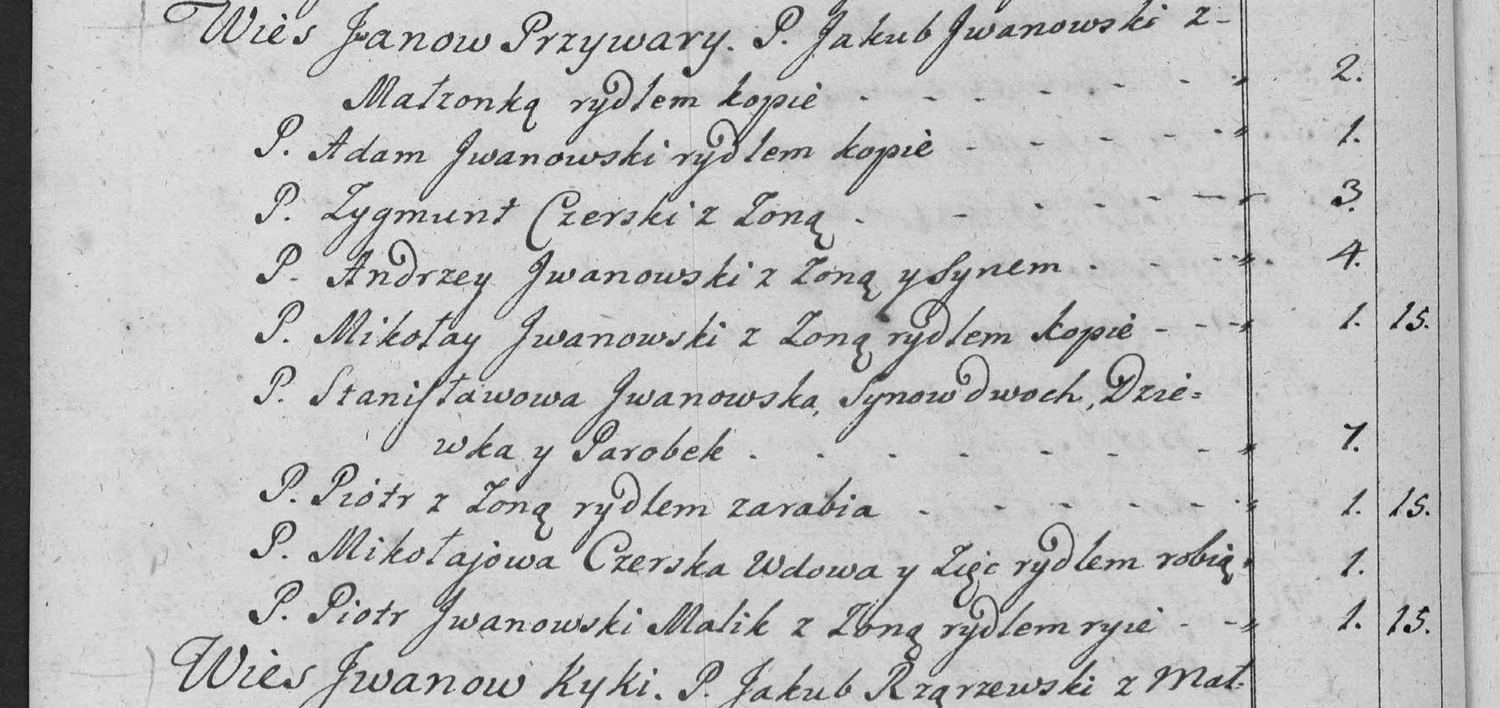 Wies Jwanow Przywary. P. Jakub Jwanowski z-
Małzonką rydlem kopie - - - - - - „ 2.
P. Adam Jwanowski rydlem kopie - - - - - „ 1.
P. Zygmunt Czerski z Zoną . - - - - - 3.
P. Andrzey Jwanowski z Zoną y Synem . - - - „ . 4.
P. Mikołay Jwanowski z Zoną rydlem kopie - - - „ 1. 15.
P. Stanisławowa Jwanowska, Synow dwoch, Dzie=
wka y Parobek . - - - - - - - „ 7.
P. Piotr z Zoną rydlem zarabia - - - - - - „ 1. 15.
P. Mikołajowa Czerska Wdowa y Zięc rydlem robią „ 1.
P. Piotr Jwanowski Malik z Zoną rydlem ryie - - „ 1. 15.
Wies Jwanow Kyki. P. Jakub Rzązewski z Mał-